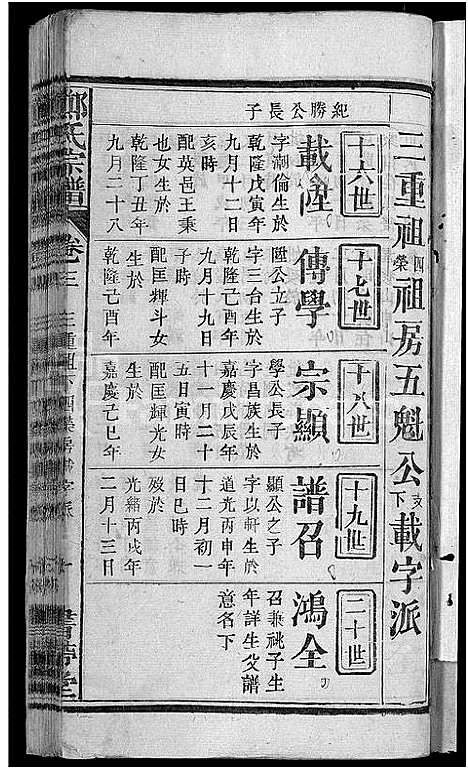 三重祖四榮祖房五魁公支下載字派
十六世
紀勝公長子
載陞
字潮倫生於
乾隆戊寅年
九月十二日
亥時
配英邑王秉
也女生於
乾隆丁丑年
九月二十八
十七世
傳學
陞公立子
字三台生於
乾隆己酉年
九月十九日
子時
配匡輝斗女
生於
乾隆己酉年
十八世
宗顯
學公長子
字昌族生於
嘉慶戊辰年
十一月二十
五日寅時
配匡輝光女
生於
嘉慶己巳年
十九世
譜召
顯公之子
字以軒生於
道光丙申年
十二月初一
日巳時
歿於
光緒丙戌年
二月十三日
二十世
鴻全
召兼祧子生
年詳生父譜
意名下
鄭氏宗譜
卷三
三重祖下四榮房載字派
書帶堂